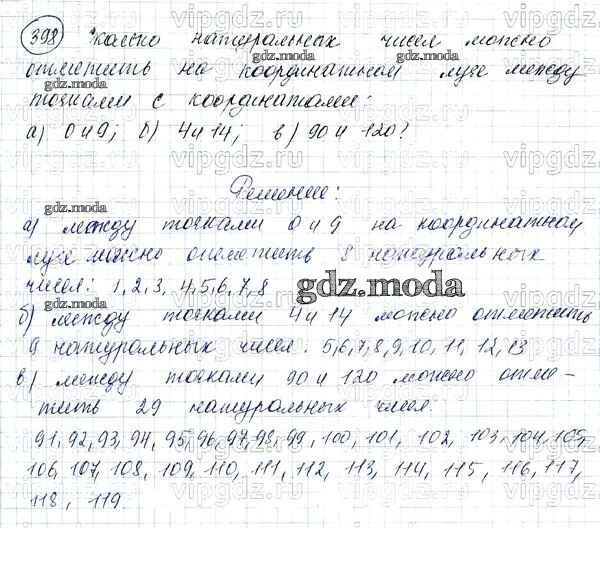 398 Сколько натуральных чисел можно
отметить на координатном луче между
точками с координатами:
а) 0 и 9; б) 4 и 14; в) 90 и 120?
Решение:
а) между точками 0 и 9 на координатном
луче можно отметить 8 натуральных
чисел: 1, 2, 3, 4, 5, 6, 7, 8
gdz.moda
б) между точками 4 и 14 можно отметить
9 натуральных чисел. 5, 6, 7, 8, 9, 10, 11, 12, 13
в) между точками 90 и 120 можно отме-
тить 29 натуральных чисел:
91, 92, 93, 94, 95, 96, 97, 98, 99, 100, 101, 102, 103, 104, 105,
106, 107, 108, 109, 110, 111, 112, 113, 114, 115, 116, 117,
118, 119.